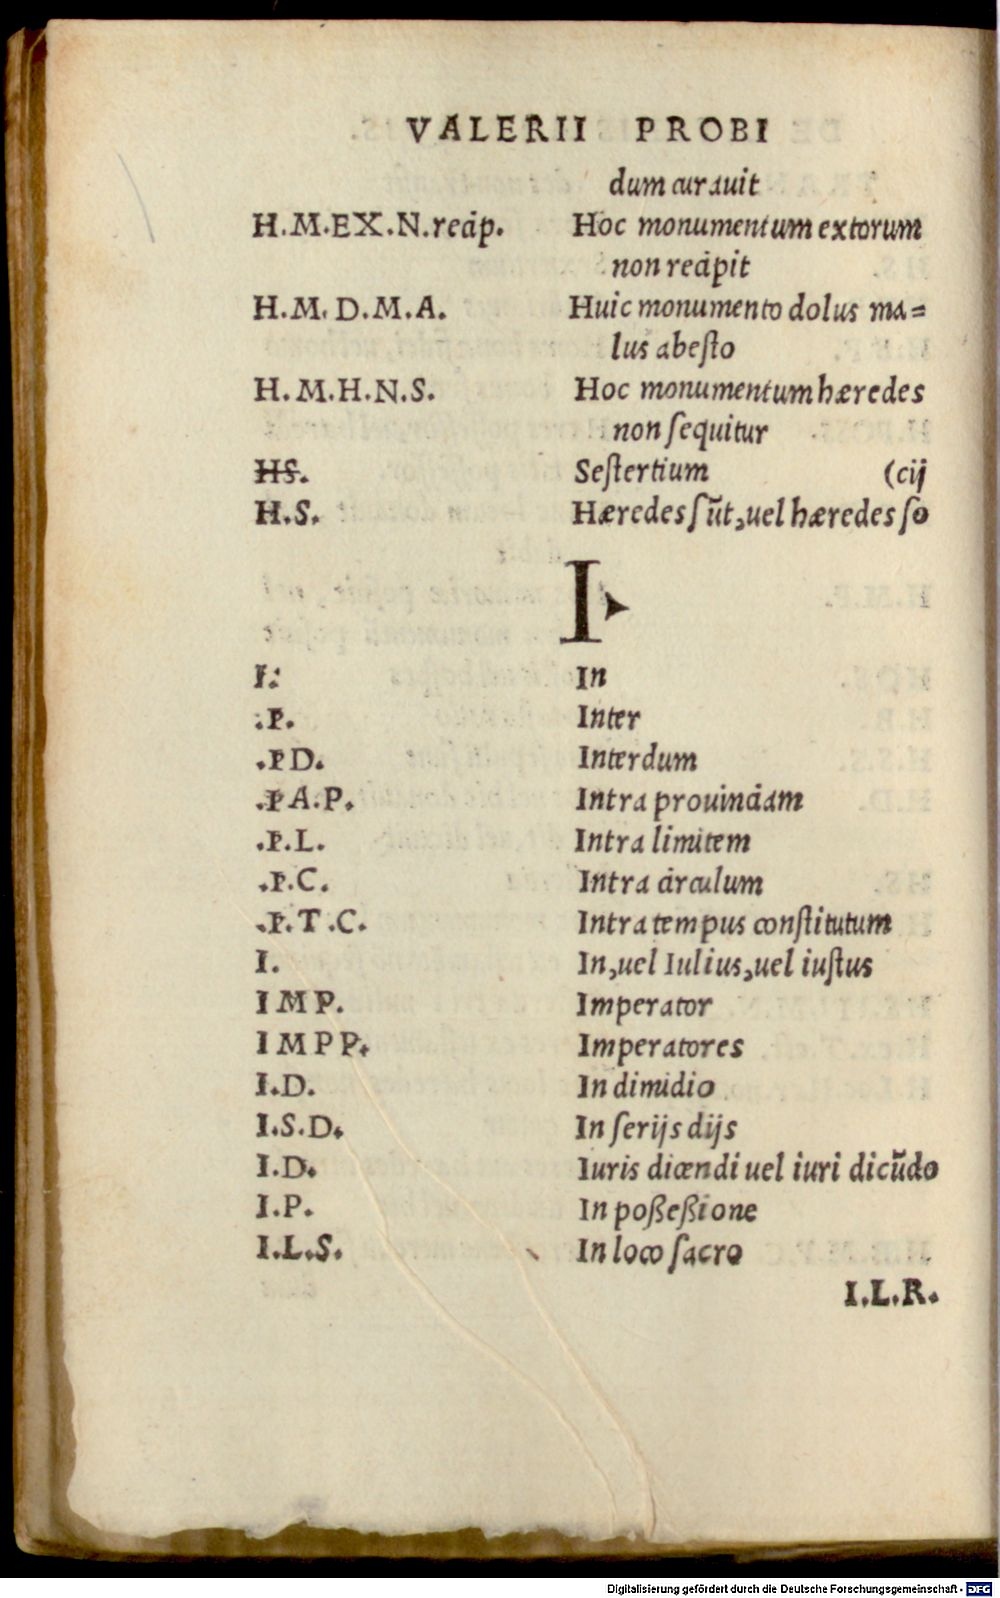 VALERII PROBI
dum curauit
H.M.EX.N.recip. Hoc monumentum extorum
non recipit
H.M.D.M.A. Huic monumento dolus ma=
lus abeſto
H.M.H.N.S. Hoc monumentum hæredes
non ſequitur
HS. Seſtertium (cij
H.S. Hæredes ſūt,uel hæredes ſo
I
I: In
.P. Inter
.PD. Interdum
.PA.P. Intra prouinciam
.P.L. Intra limitem
.P.C. Intra circulum
.P.T.C. Intra tempus conſtitutum
I. In,uel Iulius,uel iuſtus
IMP. Imperator
IMPP. Imperatores
I.D. In dimidio
I.S.D. In ſerijs dijs
I.D. Iuris dicendi uel iuri dicūdo
I.P. In poßeßione
I.L.S. In loco ſacro
I.L.R.
Digitalisierung gefördert durch die Deutsche Forschungsgemeinschaft - DFG